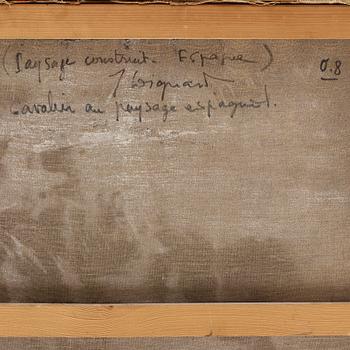 (Paysage construit. Espagne)
0.8
Cavalier au paysage espagnol.